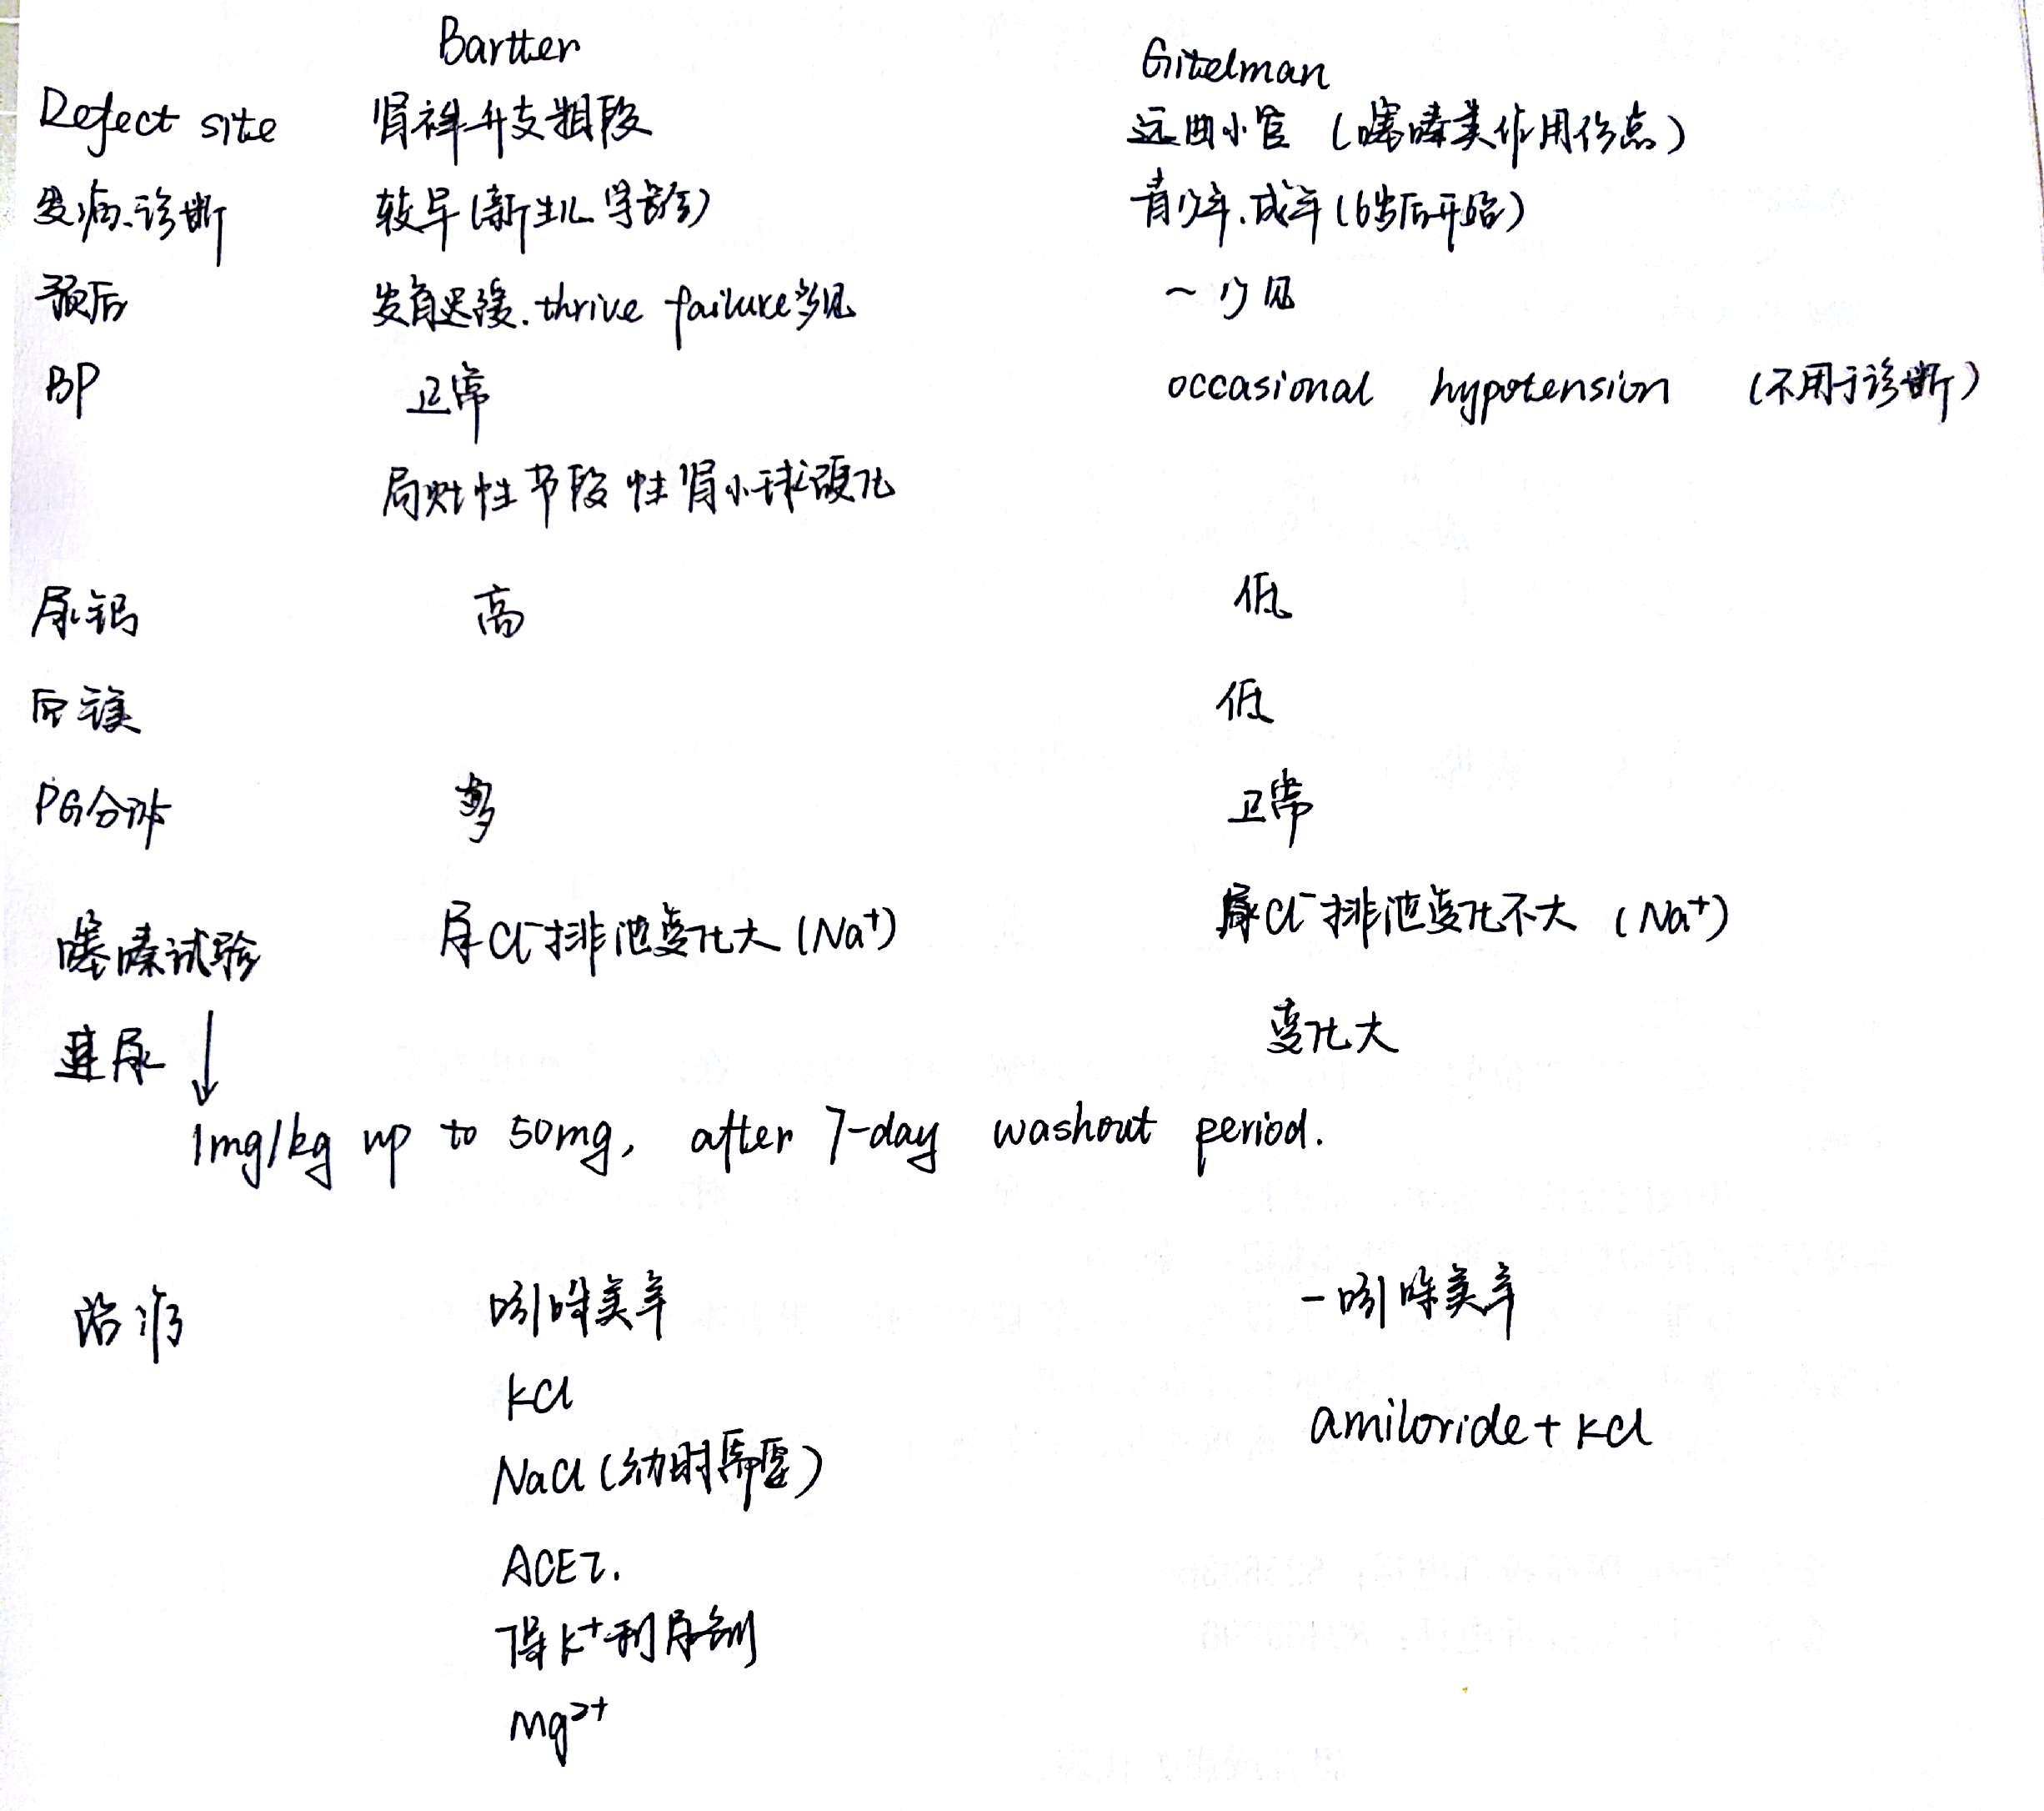 Bartter Gitelman
Defect site 肾袢升支粗段 远曲小管（噻嗪类作用位点）
发病.诊断 较早（新生儿.学龄） 青少年.成年（6岁后开始）
预后 发育迟缓.thrive failure多见 ~少见
BP 正常 occasional hypotension （不用于诊断）
局灶性节段性肾小球硬化
尿钙 高 低
镁 低
PG分泌 多 正常
噻嗪试验 尿Cl⁻排泄变化大（Na⁺） 尿Cl⁻排泄变化不大（Na⁺）
尿 ↓ 变化大
1mg/kg up to 50mg, after 7-day washout period.
治疗 吲哚美辛 -吲哚美辛
KCl amiloride+KCl
NaCl（幼时需要）
ACEI.
保K⁺利尿剂
Mg²⁺